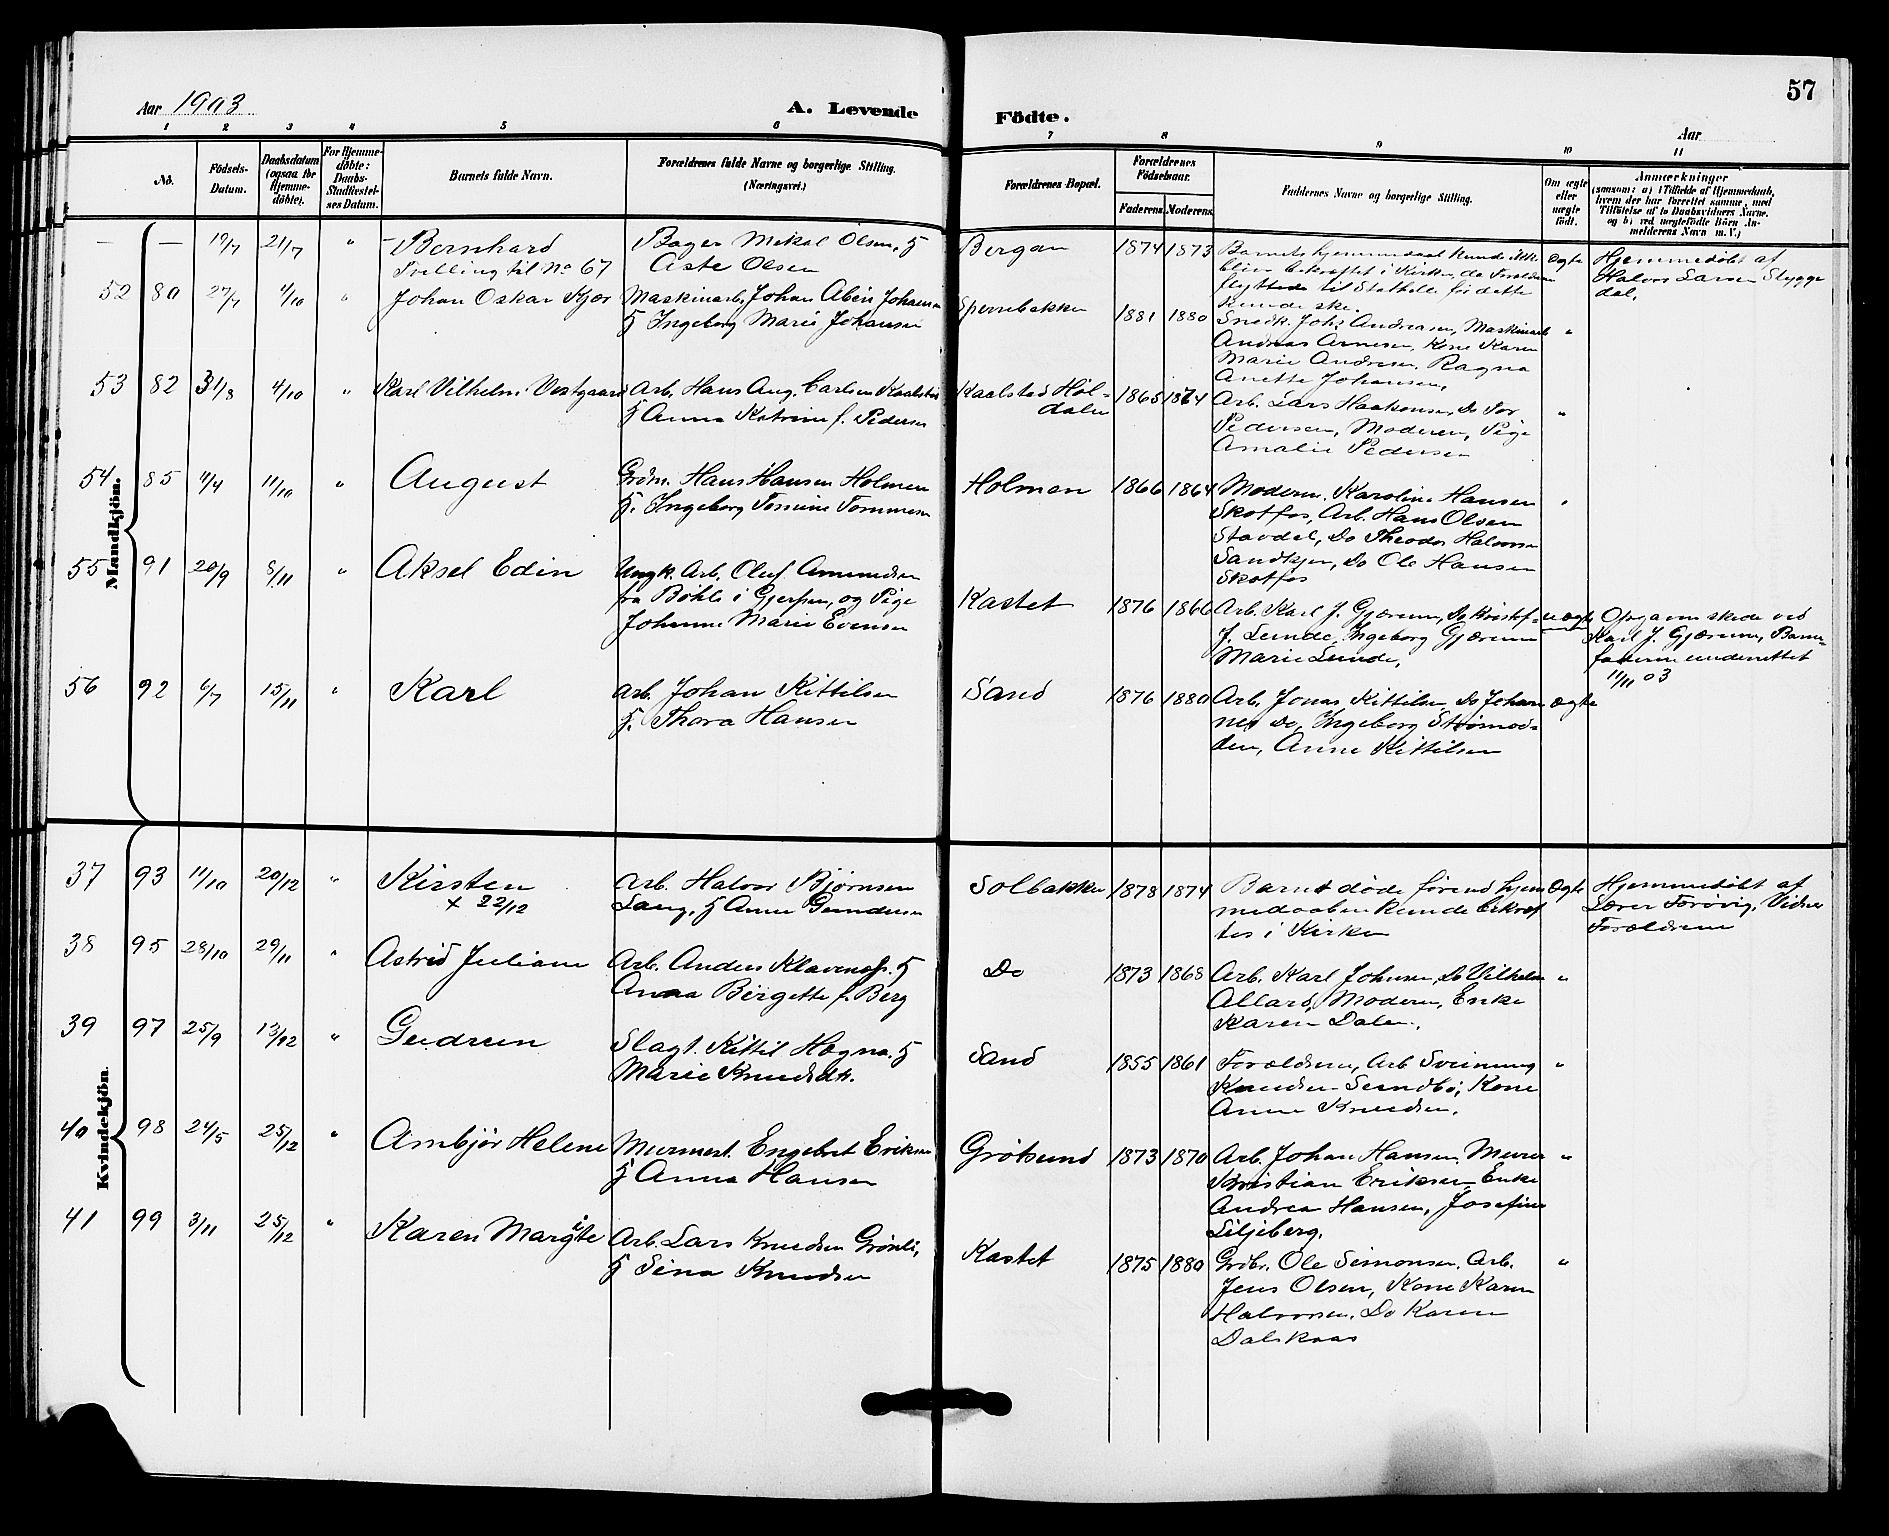 57
Aar 1903
A. Levende
Födte.
Aar
1 2 3 4 5 6
7 8 9 10 11
No.
Födsels-
Datum.
Daabsdatum
(ogsaa for
Hjemme-
döbte).
For Hjemme-
döbte:
Daabs-
Stadfæstel-
ses Datum.
Barnets fulde Navn.
Forældrenes fulde Navne og borgerlige Stilling.
(Næringsvei.)
Forældrenes Bopæl.
Forældrenes
Födselsaar.
Faderens. Moderens.
Faddernes Navne og borgerlige Stilling.
Om ægte
eller
uægte
födt.
Anmærkninger
(saasom: a) i Tilfælde af Hjemmedaab,
hvem der har forrettet samme, med
Tilföielse af to Daabsvidners Navne,
og b) ved uægtefödte Börn An-
melderens Navn m. V.)
Mandkjön.
— — 19/7 21/7 " Bernhard
Tvilling til No 67
Bager Mekal Olsen, H
Aste Olsen
Bergan 1874 1873
Barnets hjemmedaab kunde ikke
blive bekræftet i Kirken, da Forældrene
flyttede til Stathelle før dette
kunde ske.
ægte
Hjemmedöbt af
Halvor Larsen Stygge
dal.
52 80 27/7 4/10 " Johan Oskar Kjær
Maskinarb. Johan Abin Johansen
H Ingeborg Marie Johansen
Sperrebakken 1881 1880
Snedk. Johs Andreasen, Maskinarb
Andreas Arnesen, Kone Karen
Marie Andresen, Ragna
Anette Johansen.
"
53 82 31/8 4/10 " Karl Vilhelm Vestgaard
Arb. Hans Aug. Carlsen Kaalstad
H Anna Katrine f. Pedersen
Kaalstad Høl-
dalen 1865 1874
Arb. Lars Haakonsen, Do Tor
Pedersen, Moderen, Pige
Amalie Pedersen
"
54 85 11/9 11/10 " August
Grdm. Hans Hansen Holmen
H. Ingeborg Tomine Tommesen
Holmen 1866 1864
Moderen, Karoline Hansen
Skotfos, Arb. Hans Olsen
Stavdal, Do Theodor Halvorsen
Sandkjen, Do Ole Hansen
Skotfos
"
55 91 20/9 8/11 " Aksel Edin
Ungk. Arb. Oluf Amundsen
fra Bøhle i Gjerpen, og Pige
Johanne Marie Evensen
Kastet 1876 1866
Arb. Karl J. Gjærum, Do Kristf.
J. Lunde, Ingeborg Gjærum
Marie Lunde,
uægte
Opgaven skede ved
Karl J. Gjærum, Barne-
faderen underrettet
11/11 03
56 92 6/7 15/11 " Karl
Arb. Johan Kittilsen
H. Thora Hansen
Sand 1876 1880
Arb. Jonas Kittilsen, Do Johan
nes Do, Ingeborg Strømod-
den, Anne Kittilsen
ægte
Kvindekjön.
37 93 11/10 20/12 " Kirsten
+ 22/12
Arb. Halvor Bjørnsen
Lang, H Anne Gundersen
Solbakken 1878 1874
Barnet døde førend hjem
medaaben kunde bekræf
tes i Kirken
Ægte
Hjemmedöbt af
Lærer Forøvig, Vidner
Forældrene
38 95 28/10 29/11 " Astrid Juliane
Arb. Anders Klavenæs. H
Anna Birgette f. Berg
Do 1873 1868
Arb. Karl Johnsen, Do Vilhelm
Allard, Moderen, Enke
Karen Dalen.
"
39 97 25/9 13/12 " Gudrun
Slagt. Kittil Høgna. H
Marie Knudsdt.
Sand 1855 1861
Forældrene, Arb Sveinung
Knudsen Sundbø, Kone
Anne Knudsen.
"
40 98 24/5 25/12 " Ambjør Helene
Murmest. Engebret Eriksen
H Anna Hansen
Grøtsund 1873 1870
Arb. Johan Hansen, Murer
Kristian Eriksen, Enke
Andrea Hansen, Josefine
Liljeberg.
"
41 99 3/11 25/12 " Karen Margite
Arb. Lars Knudsen Grønli,
H Sina Knudsen
Kastet 1875 1880
Grdbr. Ole Simonsen, Arb.
Jens Olsen, Kone Karen
Halvorsen, Do Karen
Dalskaas
"